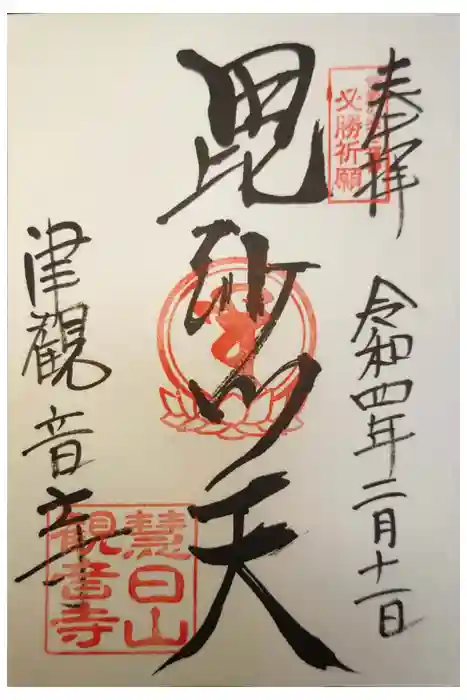 奉拝
必勝祈願
令和四年二月十一日
毘沙門天
津観音
慧日山
観音寺